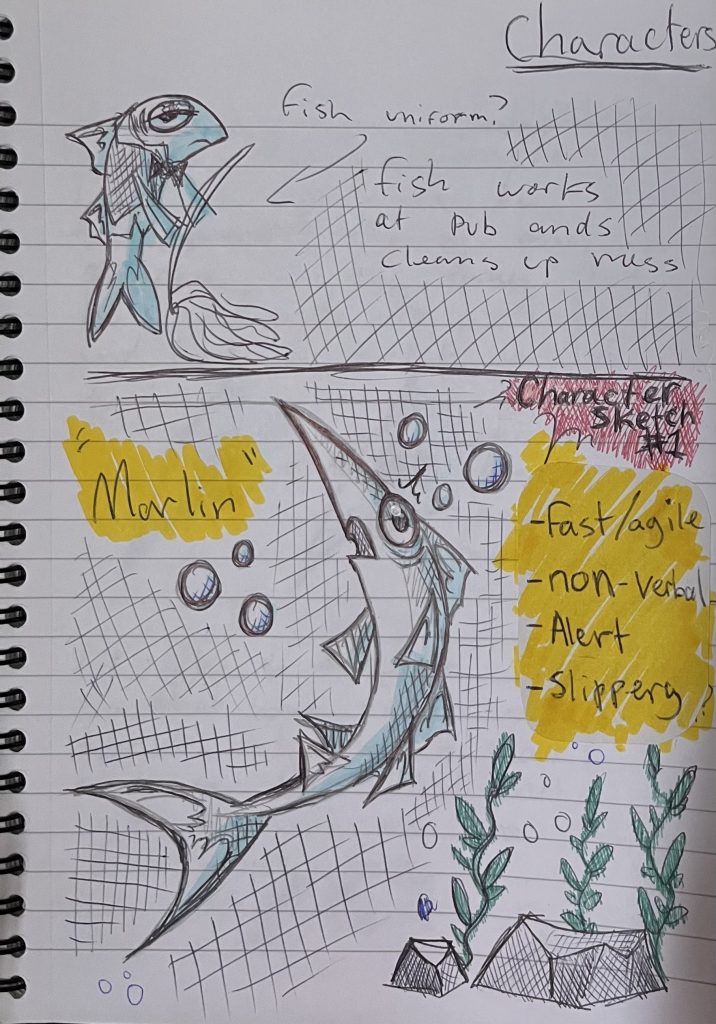 Characters
fish uniform?
fish works
at pub ands
cleans up mess
Character
Sketch
#1
"Marlin"
-fast/agile
-non-verbal
-Alert
-Slippery?